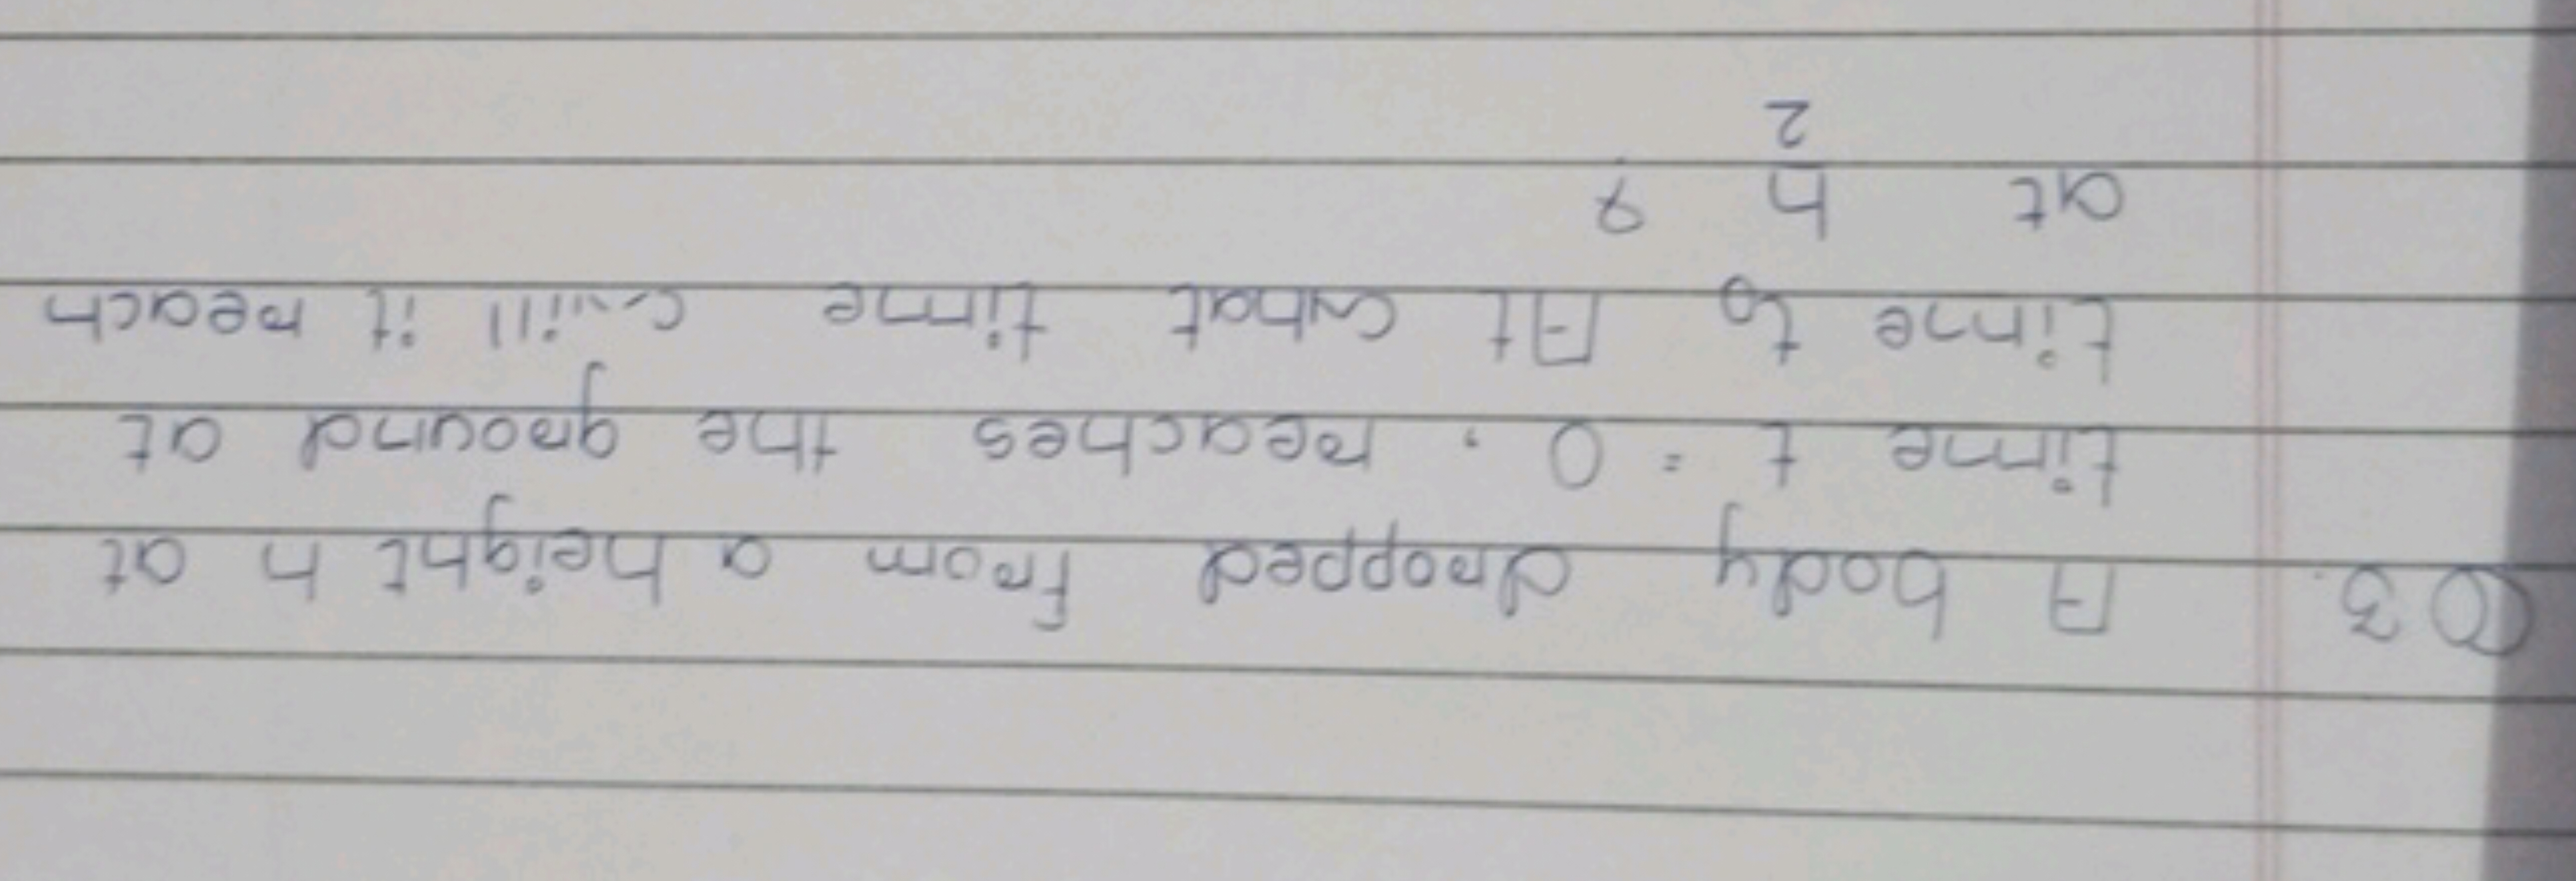 Q3. A body dropped from a height h at
time t = 0, reaches the ground at
time t₀ At what time will it reach
at h/2 ?